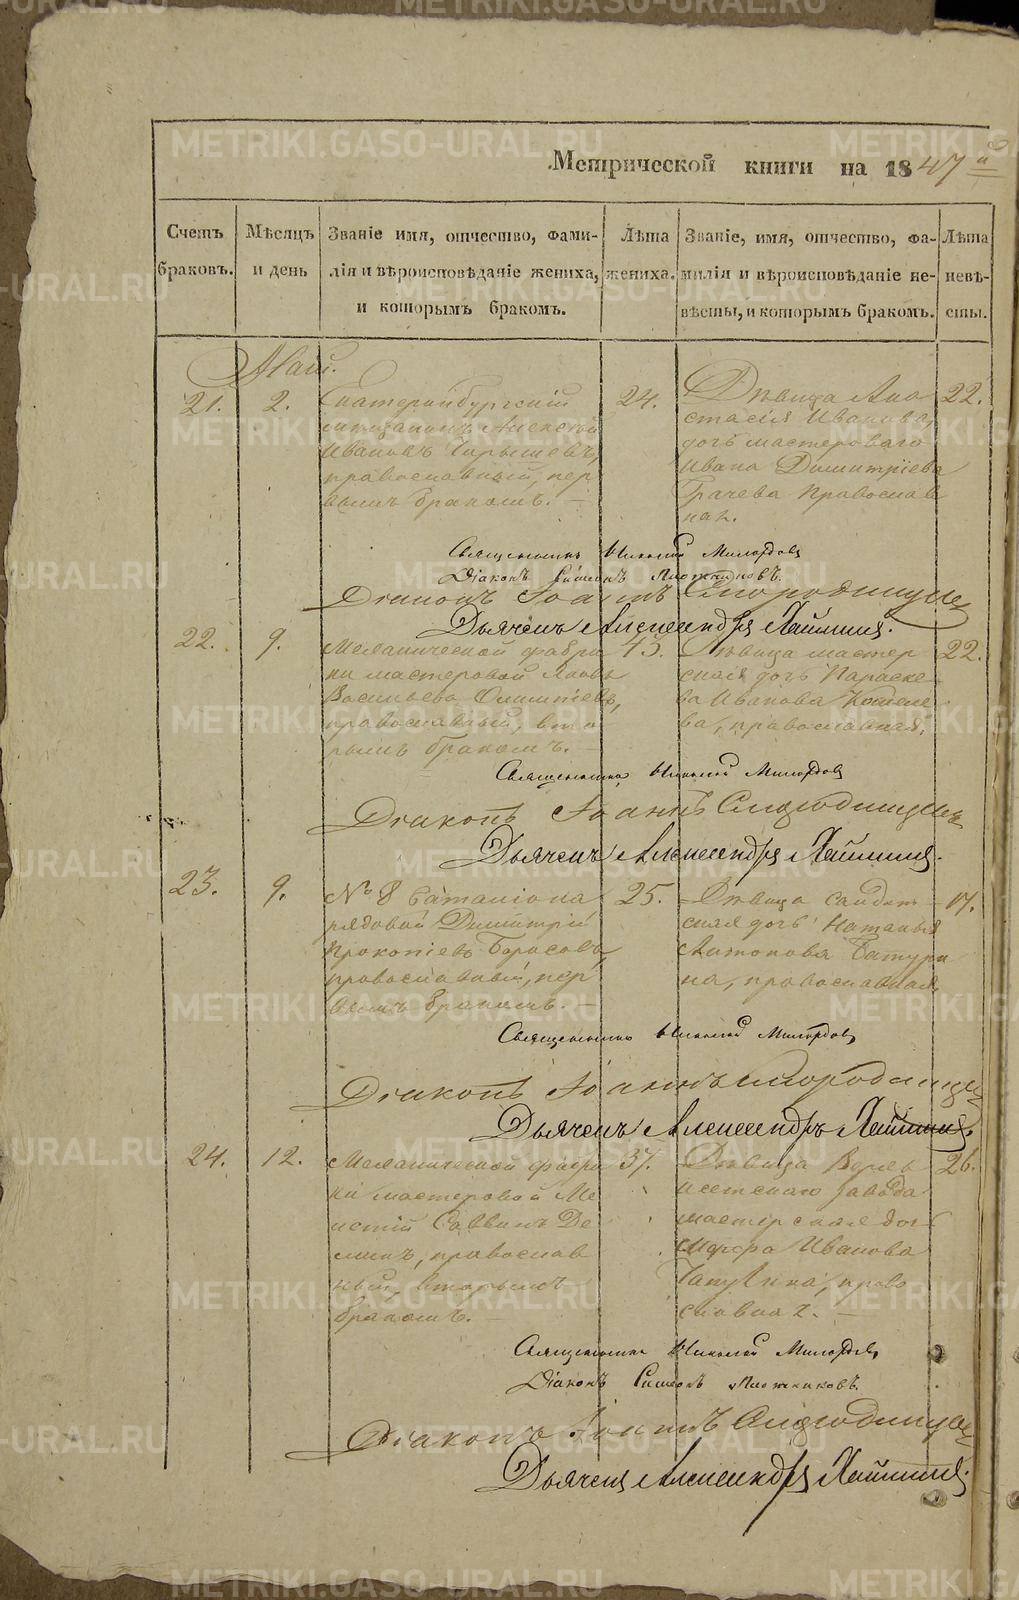 Метрической книги на 1847й
Счетъ браковъ.
Мѣсяцъ и день
Званіе имя, отчество, фами-
лія и вѣроисповѣданіе жениха,
и которымъ бракомъ.
Лѣта жениха.
Званіе, имя, отчество, фа-
милія и вѣроисповѣданіе не-
вѣсты, и которымъ бракомъ.
Лѣта невѣ-
сты.
Маій.
21. 2.
Екатеринбургскій
мѣщанинъ Алексѣй
Ивановъ
православный, пер
вымъ бракомъ. —
24.
Дѣвица Ана
стасія Иванова,
дочь мастероваго
Ивана Димитріева
Грачева Православ
ная.
22.
Священникъ Николай Милордовъ
Діаконъ Симеонъ
Діаконъ Іоаннъ Смородинцевъ
Дьячекъ Александръ
22. 9.
Механической фабри
ки мастеровой Яковъ
Васильевъ
православный, вто
рымъ бракомъ. —
43.
Дѣвица мастер
ская дочь Параске
ва Иванова Кошеле
ва, православная.
22.
Священникъ Николай Милордовъ
Діаконъ Іоаннъ Смородинцевъ
Дьячекъ Александръ
23. 9.
№ 8 баталіона
рядовой Димитрій
Прокопіевъ Борисовъ,
православный, пер
вымъ бракомъ. —
25.
Дѣвица солдат
ская дочь Наталья
Антонова Батури
на, православная.
17.
Священникъ Николай Милордовъ
Діаконъ Іоаннъ Смородинцевъ
Дьячекъ Александръ
24. 12.
Механической фабри
ки мастеровой Ме
Саввинъ Де
минъ, православ
ный, вторымъ
бракомъ. —
37.
Дѣвица Верхъ
исетскаго завода
мастерская дочь
Иванова
право
славная. —
26.
Священникъ Николай Милордовъ
Діаконъ Симеонъ
Діаконъ Іоаннъ Смородинцевъ
Дьячекъ Александръ
METRIKI.GASO-URAL.RU